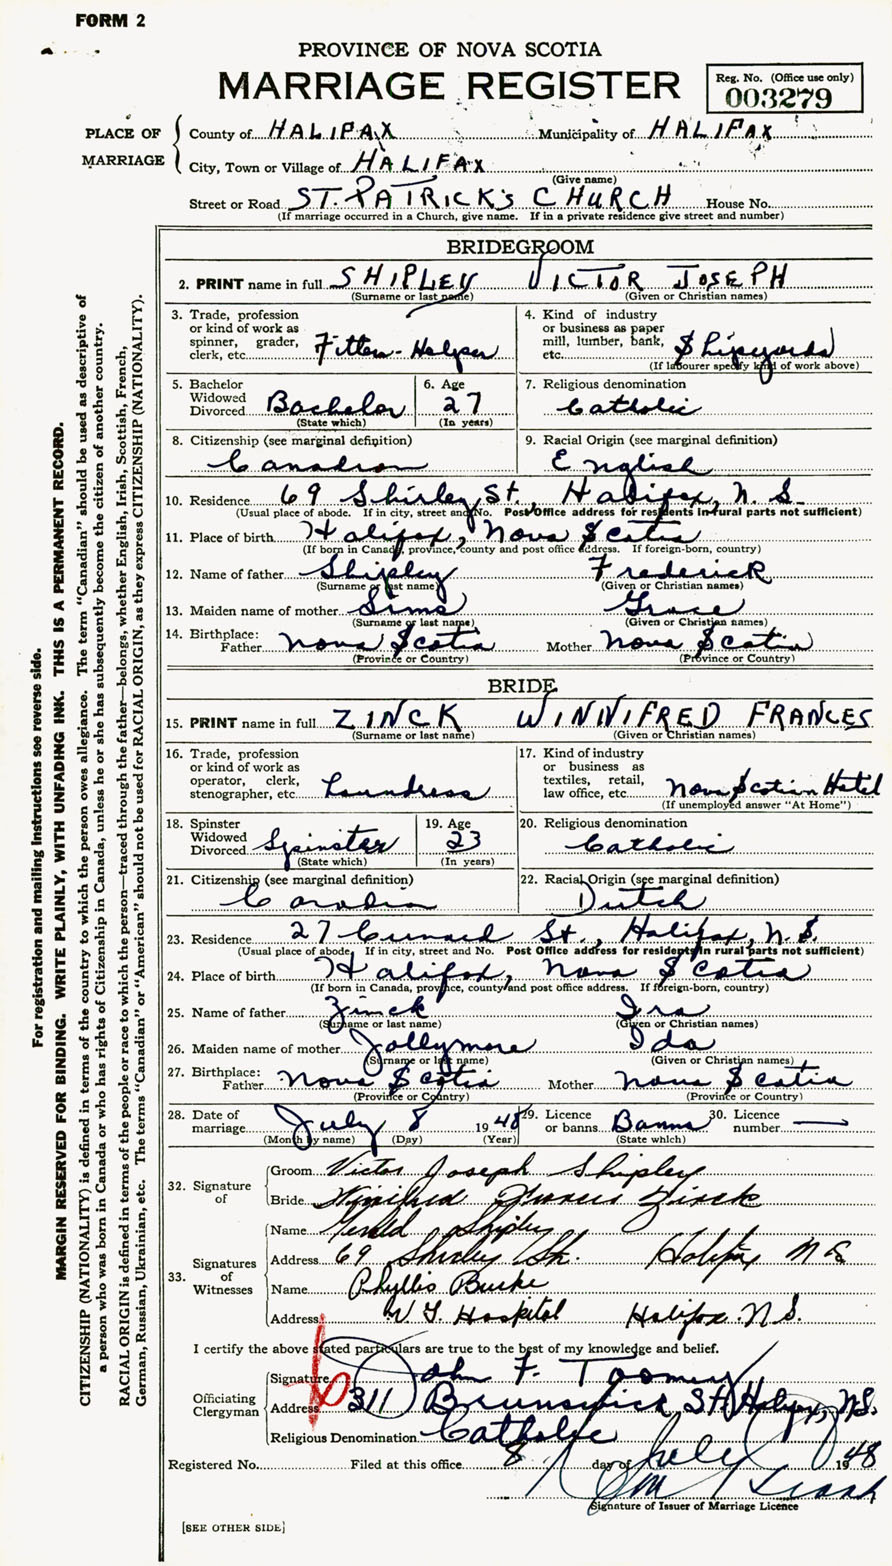 FORM 2
PROVINCE OF NOVA SCOTIA
MARRIAGE REGISTER
Reg. No. (Office use only)
003279
PLACE OF MARRIAGE
County of HALIFAX Municipality of HALIFAX
City, Town or Village of HALIFAX
(Give name)
Street or Road ST. PATRICK'S CHURCH House No.
(If marriage occurred in a Church, give name. If in a private residence give street and number)
BRIDEGROOM
2. PRINT name in full SHIPLEY VICTOR JOSEPH
(Surname or last name) (Given or Christian names)
3. Trade, profession or kind of work as spinner, grader, clerk, etc. Fitter-Helper
4. Kind of industry or business as paper mill, lumber, bank, etc. Shipyards
(If labourer specify kind of work above)
5. Bachelor Widowed Divorced Bachelor
(State which)
6. Age 27
(In years)
7. Religious denomination Catholic
8. Citizenship (see marginal definition) Canadian
9. Racial Origin (see marginal definition) English
10. Residence 69 Shirley St., Halifax, N.S.
(Usual place of abode. If in city, street and No. Post Office address for residents in rural parts not sufficient)
11. Place of birth Halifax, Nova Scotia
(If born in Canada, province, county and post office address. If foreign-born, country)
12. Name of father Shipley Frederick
(Surname or last name) (Given or Christian names)
13. Maiden name of mother Sims Grace
(Surname or last name) (Given or Christian names)
14. Birthplace: Father Nova Scotia Mother Nova Scotia
(Province or Country) (Province or Country)
BRIDE
15. PRINT name in full ZINCK WINNIFRED FRANCES
(Surname or last name) (Given or Christian names)
16. Trade, profession or kind of work as operator, clerk, stenographer, etc. Laundress
17. Kind of industry or business as textiles, retail, law office, etc. Nova Scotian Hotel
(If unemployed answer "At Home")
18. Spinster Widowed Divorced Spinster
(State which)
19. Age 23
(In years)
20. Religious denomination Catholic
21. Citizenship (see marginal definition) Canadian
22. Racial Origin (see marginal definition) Dutch
23. Residence 27 Cunard St., Halifax, N.S.
(Usual place of abode. If in city, street and No. Post Office address for residents in rural parts not sufficient)
24. Place of birth Halifax, Nova Scotia
(If born in Canada, province, county and post office address. If foreign-born, country)
25. Name of father Zinck Ira
(Surname or last name) (Given or Christian names)
26. Maiden name of mother Jollymore Ida
(Surname or last name) (Given or Christian names)
27. Birthplace: Father Nova Scotia Mother Nova Scotia
(Province or Country) (Province or Country)
28. Date of marriage July 8 1948
(Month by name) (Day) (Year)
29. Licence or banns Banns
(State which)
30. Licence number —
32. Signature of
Groom Victor Joseph Shipley
Bride Winifred Frances Zinck
33. Signatures of Witnesses
Name Gerald Shipley
Address 69 Shirley St. Halifax N S
Name Phyllis Burke
Address V. G. Hospital Halifax N.S.
I certify the above stated particulars are true to the best of my knowledge and belief.
Officiating Clergyman
Signature John F. Toomey
Address 311 Brunswick St. Halifax, N.S.
Religious Denomination Catholic
Registered No. Filed at this office 8 day of July 1948
Signature of Issuer of Marriage Licence
[SEE OTHER SIDE]
For registration and mailing instructions see reverse side.
MARGIN RESERVED FOR BINDING. WRITE PLAINLY, WITH UNFADING INK. THIS IS A PERMANENT RECORD.
CITIZENSHIP (NATIONALITY) is defined in terms of the country to which the person owes allegiance. The term "Canadian" should be used as descriptive of
a person who was born in Canada or who has rights of Citizenship in Canada, unless he or she has subsequently become the citizen of another country.
RACIAL ORIGIN is defined in terms of the people or race to which the person—traced through the father—belongs, whether English, Irish, Scottish, French,
German, Russian, Ukrainian, etc. The terms "Canadian" or "American" should not be used for RACIAL ORIGIN, as they express CITIZENSHIP (NATIONALITY).